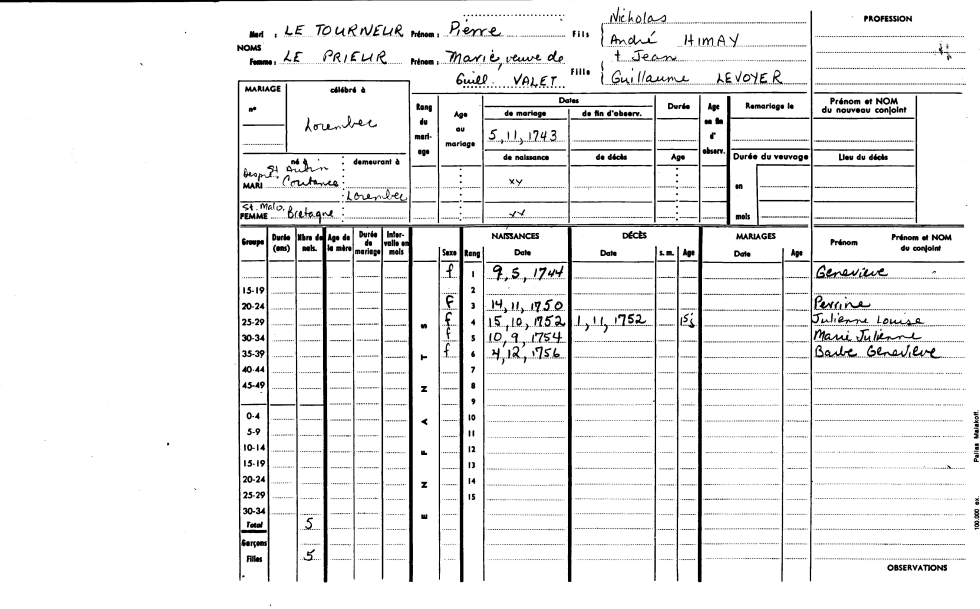 Nicholas
PROFESSION
Mari : LE TOURNEUR Prénom : Pierre Fils { André HIMAY
NOMS
† Jean
Femme : LE PRIEUR Prénom : Marie, veuve de Fille { Guillaume LEVOYER
Guill. VALET
MARIAGE célébré à
n°
Lorembec
Rang du mariage
Age au mariage
Dates
de mariage de fin d'observ.
5, 11, 1743
de naissance de décès
xy
xy
Durée
Age
Age en fin d'observ.
Remariage le
Durée du veuvage
en
mois
Prénom et NOM du nouveau conjoint
Lieu du décès
né à demeurant à
St Aubin
MARI Coutance Lorembec
St. Malo.
FEMME Bretagne
Groupe Durée (ans) Nbre de nais. Age de la mère Durée de mariage Intervalle en mois
ENFANTS
NAISSANCES DÉCÈS MARIAGES Prénom Prénom et NOM du conjoint
Sexe Rang Date Date s. m. Age Date Age
f 1 9, 5, 1744 Geneviève
15-19 2
20-24 f 3 14, 11, 1750 Perrine
25-29 f 4 15, 10, 1752 1, 11, 1752 15j Julienne Louise
30-34 f 5 10, 9, 1754 Marie Julienne
35-39 f 6 4, 12, 1756 Barbe Geneviève
40-44 7
45-49 8
9
0-4 10
5-9 11
10-14 12
15-19 13
20-24 14
25-29 15
30-34
Total 5
Garçons
Filles 5
OBSERVATIONS
100.000 ex.